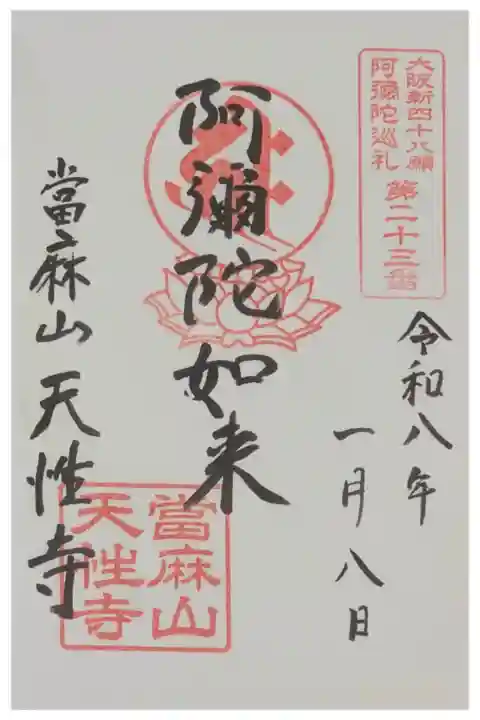 大阪新四十八願
阿彌陀巡礼
第二十三番
令和八年
一月八日
阿彌陀如来
當麻山天性寺
當麻山
天性寺